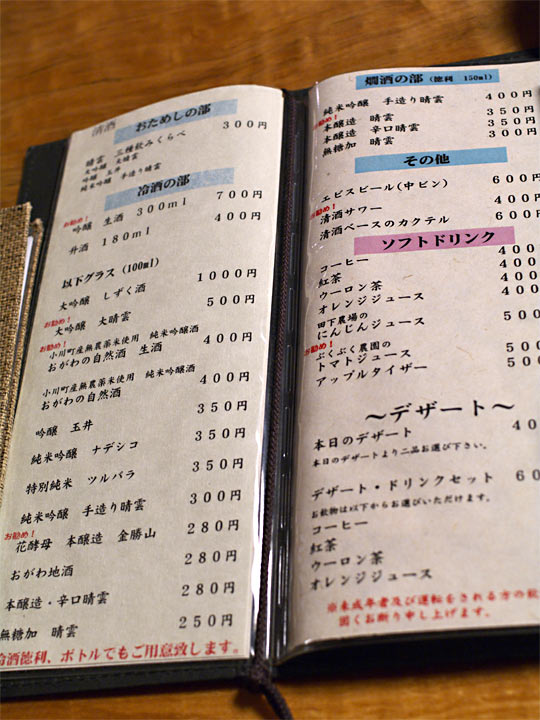 清酒
おためしの部
晴雲 三種飲みくらべ 300円
大吟醸 大晴雲
吟醸 玉井
純米吟醸 手造り晴雲
冷酒の部
お勧め!
吟醸 生酒 300ml 700円
井酒 180ml 400円
以下グラス(100ml)
大吟醸 しずく酒 1000円
お勧め!
大吟醸 大晴雲 500円
お勧め!
小川町産無農薬米使用 純米吟醸酒
おがわの自然酒 生酒 400円
小川町産無農薬米使用 純米吟醸酒
おがわの自然酒 400円
吟醸 玉井 350円
純米吟醸 ナデシコ 350円
特別純米 ツルバラ 350円
純米吟醸 手造り晴雲 300円
お勧め!
花酵母 本醸造 金勝山 280円
おがわ地酒 280円
本醸造・辛口晴雲 280円
無糖加 晴雲 250円
冷酒徳利、ボトルでもご用意致します。
燗酒の部(徳利 150ml)
純米吟醸 手造り晴雲 400円
お勧め!
本醸造 晴雲 350円
本醸造 辛口晴雲 350円
無糖加 晴雲 300円
その他
エビスビール(中ビン) 600円
お勧め!
清酒サワー 400円
清酒ベースのカクテル 600円
ソフトドリンク
コーヒー 400
紅茶 400
ウーロン茶 400
オレンジジュース 400
田下農場の
にんじんジュース 500
お勧め!
ぶくぶく農園の
トマトジュース 500
アップルタイザー 500
〜デザート〜
本日のデザート 40
本日のデザートより二品お選び下さい。
デザート・ドリンクセット 60
お飲物は以下からお選びいただけます。
コーヒー
紅茶
ウーロン茶
オレンジジュース
※未成年者及び運転をされる方の飲
固くお断り申し上げます。